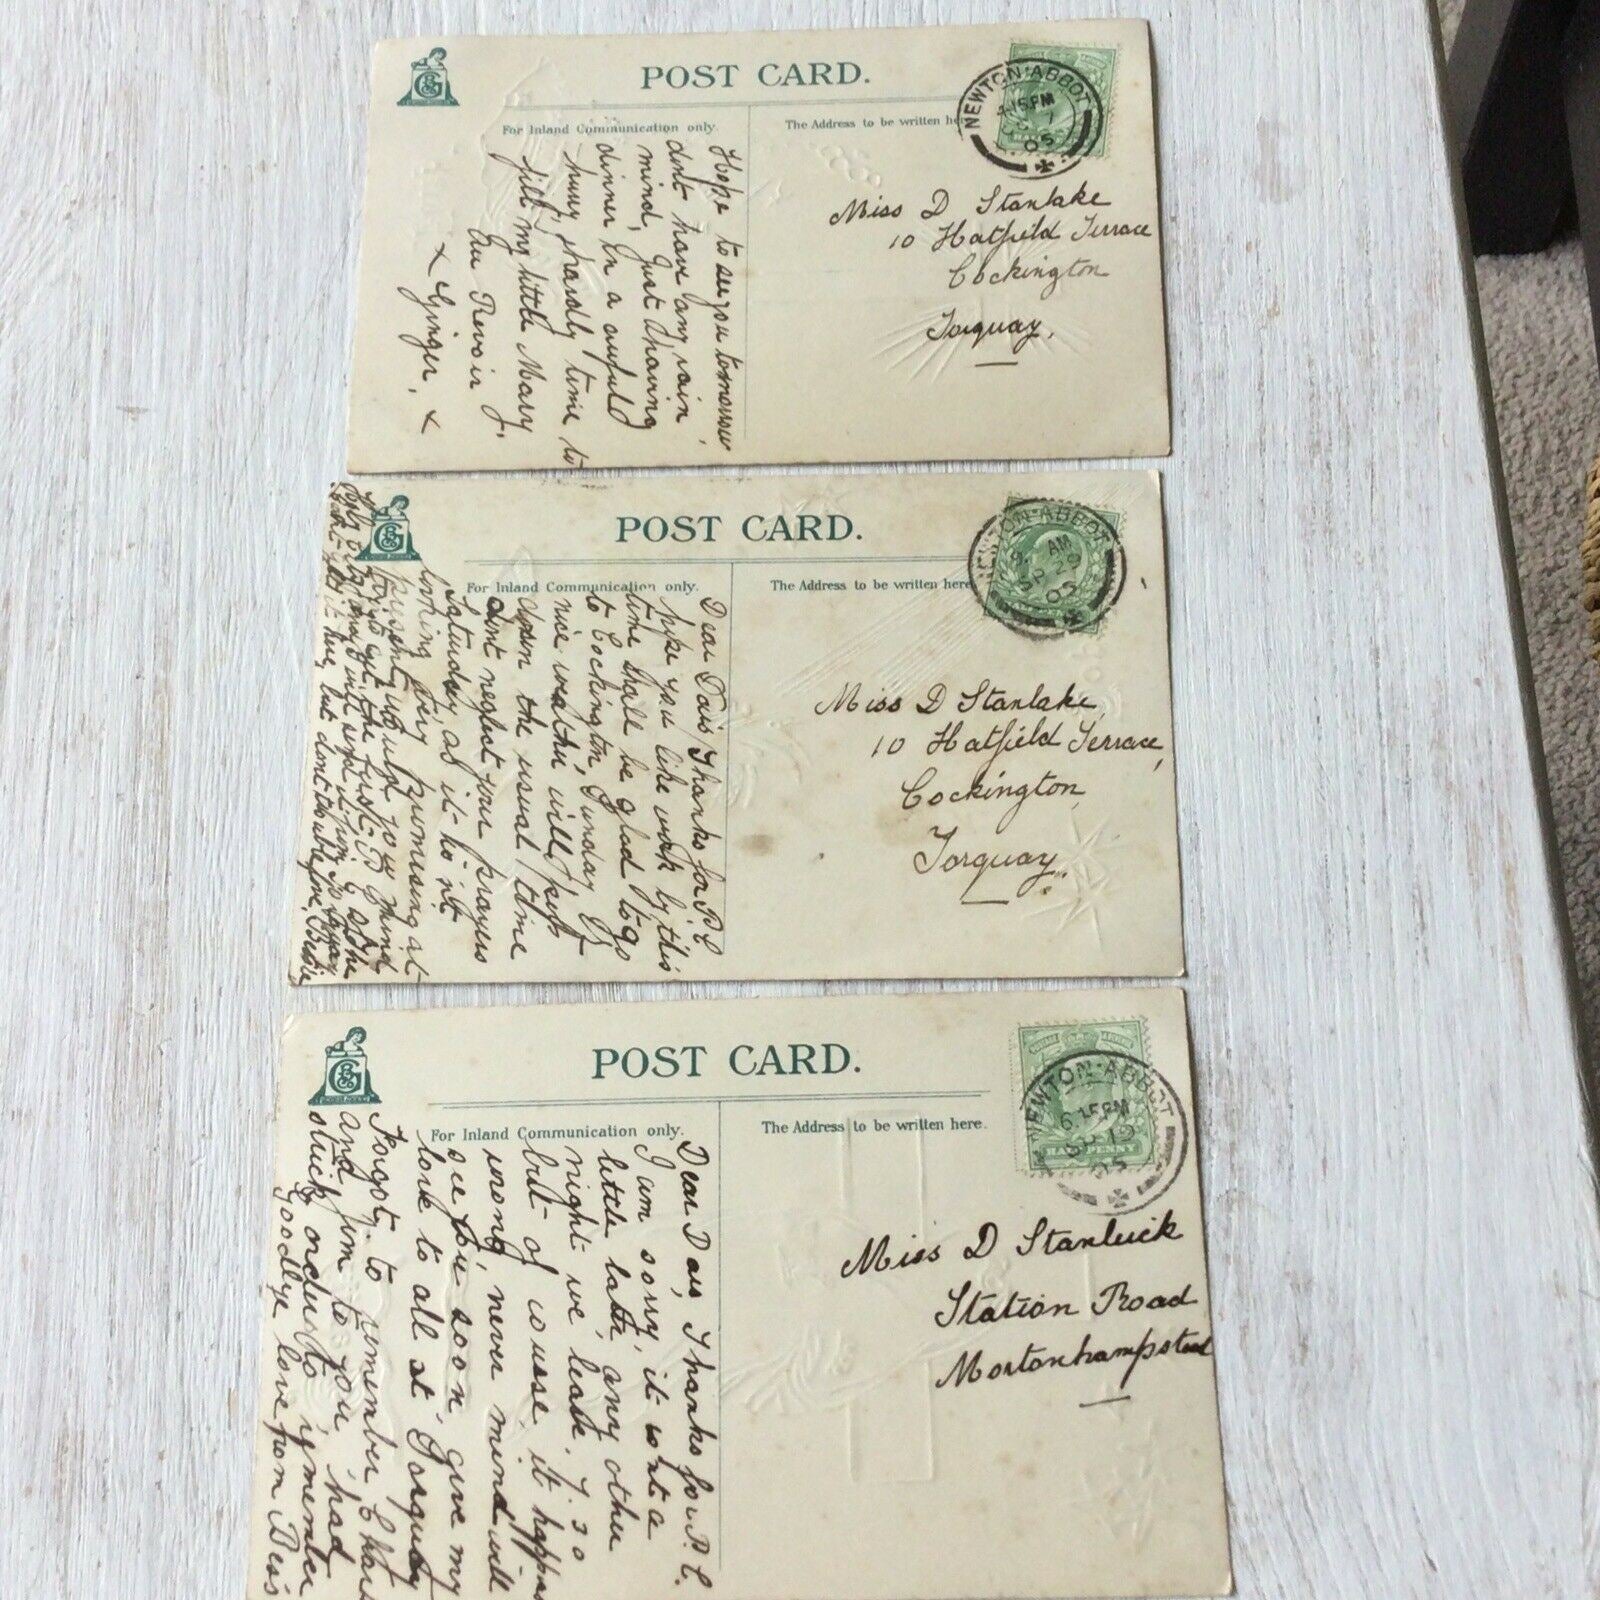 POST CARD.
For Inland Communication only.
The Address to be written here
NEWTON-ABBOT
15 PM
05
Hope to see you tomorrow,
dont have any rain
mind, Just having
dinner in a awful
hurry, hardly time to
fill my little Mary
Au Revoir
x Ginger. x
Miss D Stanlake
10 Hatfield Terrace
Cockington
Torquay,
POST CARD.
For Inland Communication only.
The Address to be written here
NEWTON-ABBOT
AM
SP 29
05
Dear Dais Thanks for P.C
hope you like work by this
time shall be glad to go
to Cockington Sunday, If
nice weather, will pop
down the usual time
dont neglect your prayers
Saturday, as it is nt
looking very promising at
present, would you mind
the first
will send it
here, but dont
Bessie
Miss D Stanlake,
10 Hatfield Terrace,
Cockington,
Torquay.
POST CARD.
For Inland Communication only.
The Address to be written here.
NEWTON-ABBOT
6 15 PM
SP 19
05
HALFPENNY
Dear Dais, Thanks for P.C.
I am sorry, it isnt a
little later, any other
night we leave 7.30
but of course, it happens
wrong, never mind will
see you soon, give my
love to all at Torquay
Forgot to remember
and Jim to you, had
strict orders to
Goodbye love from Bess
Miss D Stanluick
Station Road
Mortonhampstead